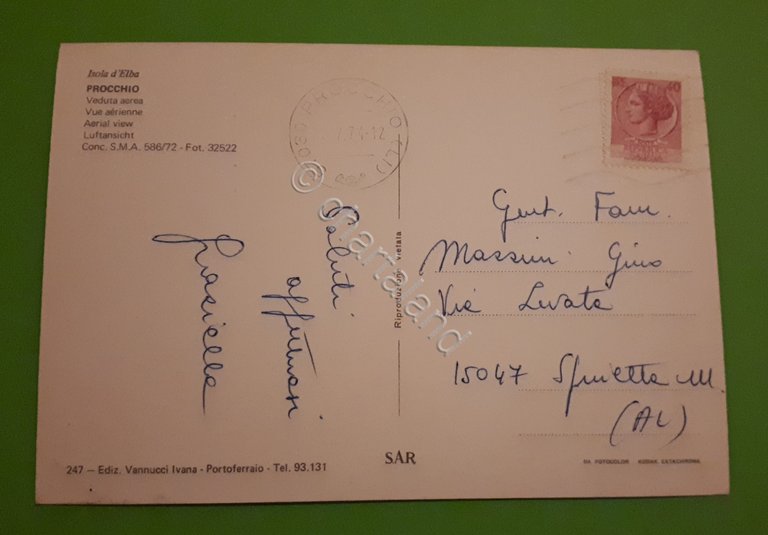 Isola d'Elba
PROCCHIO
Veduta aerea
Vue aérienne
Aerial view
Luftansicht
Conc. S.M.A. 586/72 - Fot. 32522
PROCCHIO (LI)
Saluti
affettuosi
Graziella
Riproduzione vietata
© chartaland
Gent. Fam.
Massimi Gino
Via Levata
15047 Spinetta M.
(AL)
247 — Ediz. Vannucci Ivana - Portoferraio - Tel. 93.131
SAR
MA FOTOCOLOR KODAK EKTACHROME